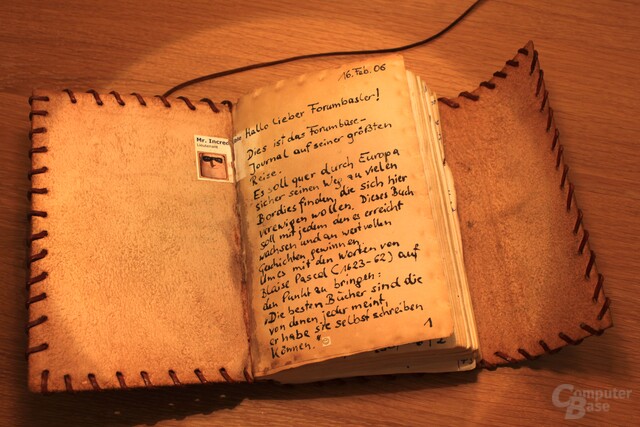 16. Feb. 06
Hallo lieber Forumbasler!
Dies ist das Forumbase-
Journal auf seiner größten
Reise.
Es soll quer durch Europa
sicher seinen Weg zu vielen
Bordies finden, die sich hier
verewigen wollen. Dieses Buch
soll mit jedem den es erreicht
wachsen und an wertvollen
Geschichten gewinnen.
Um es mit den Worten von
Blaise Pascal (1623-62) auf
den Punkt zu bringen:
"Die besten Bücher sind die
von denen jeder meint,
er habe sie selbst schreiben
können."
1
Mr. Incred
Lieutenant
ComputerBase